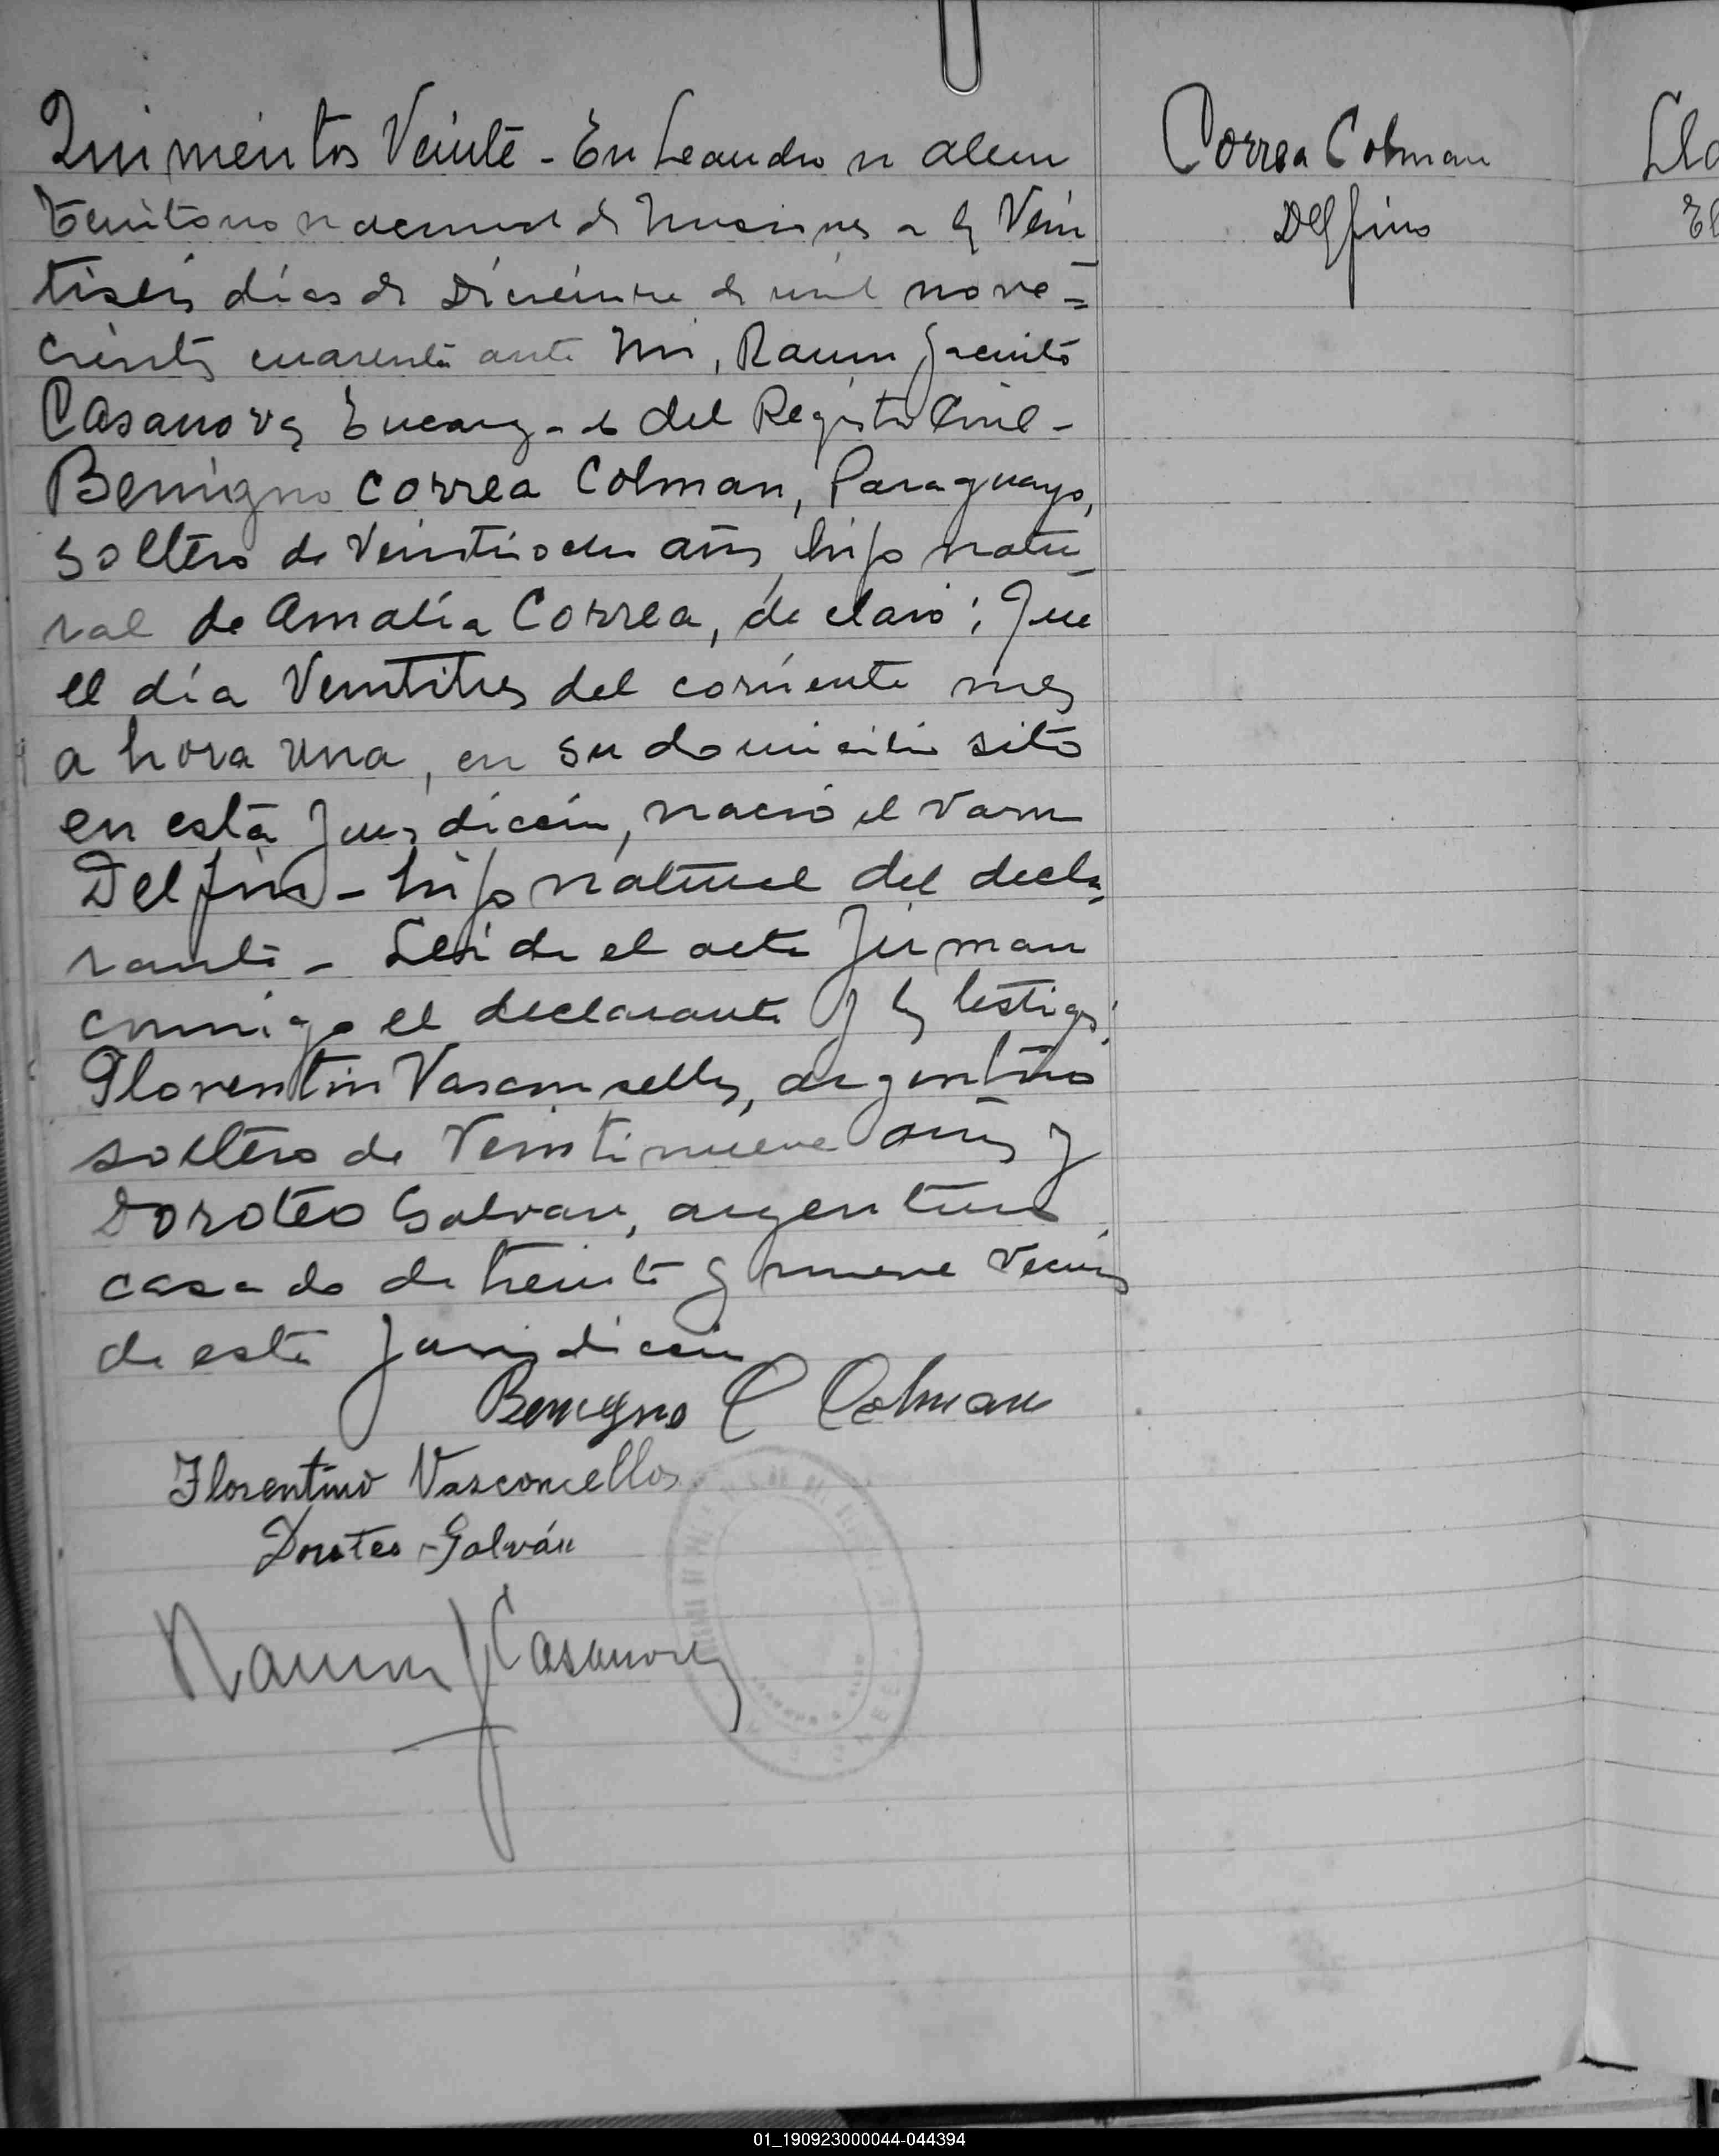 Quinientos Veinte - En Leandro n alem
territorio nacional de Misiones a los Vein
tiseis días de Diciembre de mil nove=
cientos cuarenta ante mi, Ramon Jacinto
Casanova, Encargado del Registro Civil -
Benigno Correa Colman, Paraguayo,
soltero de Veintiocho años, hijo natu_
ral de Amalia Correa, declaró; Que
el día Veintitres del corriente mes
a hora una, en su domicilio sito
en esta Jurisdicción, nació el varon
Delfino - hijo natural del decla_
rante - Leida el acta firman
conmigo el declarante y los testigos;
Florentin Vasconsellos, argentino
soltero de Veintinueve años y
Doroteo Galvan, argentino,
casado de treinta y nueve vecinos
de esta Jurisdicción
Benigno C Colman
Florentino Vasconcellos
Doroteo Galván
Ramon J Casanova
Correa Colman
Delfino
01_190923000044-044394